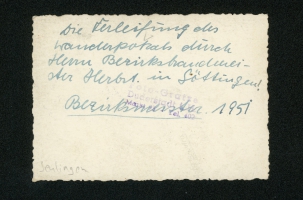 Die Verleihung des
wanderpokals durch
Herrn Bezirksbandemei-
ster Herbst. in Göttingen!
Bezirksmeister. 1951